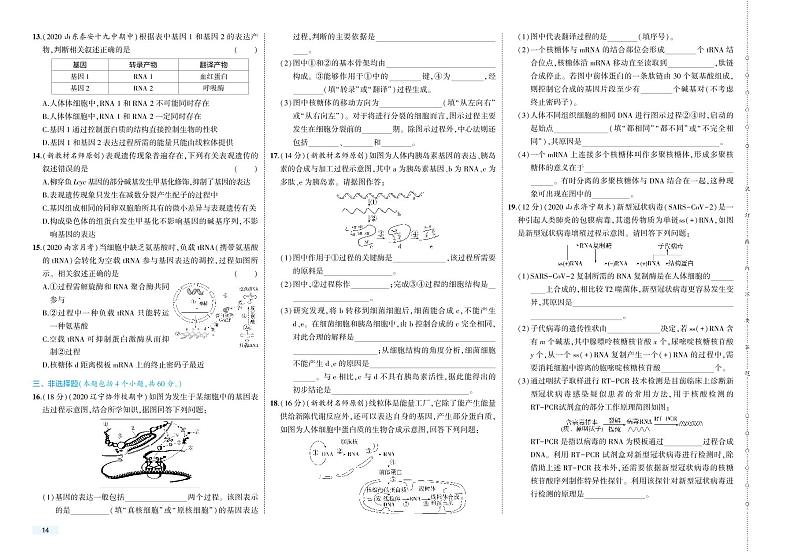 13.(2020 山东泰安十九中期中)根据表中基因 1 和基因 2 的表达产
物,判断相关叙述正确的是 ( )
基因 转录产物 翻译产物
基因 1 RNA 1 血红蛋白
基因 2 RNA 2 呼吸酶
A.人体体细胞中,RNA 1 和 RNA 2 不可能同时存在
B.人体体细胞中,RNA 1 和 RNA 2 一定同时存在
C.基因 1 通过控制蛋白质的结构直接控制生物的性状
D.基因 1 和基因 2 表达过程所需的能量只能由线粒体提供
14.(新教材名师原创)表观遗传现象普遍存在,下列有关表观遗传的
叙述错误的是 ( )
A.柳穿鱼 Lcyc 基因的部分碱基发生甲基化修饰,抑制了基因的表达
B.表观遗传现象只发生在减数分裂产生配子的过程中
C.基因组成相同的同卵双胞胎所具有的微小差异与表观遗传有关
D.构成染色体的组蛋白发生甲基化不影响基因的碱基序列,不影
响基因的表达
15.(2020 南京月考)当细胞中缺乏氨基酸时,负载 tRNA(携带氨基酸
的 tRNA)会转化为空载 tRNA 参与基因表达的调控,过程如图所
示。相关叙述正确的是 ( )
A.①过程需解旋酶和 RNA 聚合酶共同
参与
B.②过程中一种负载 tRNA 只能转运
一种氨基酸
C.空载 tRNA 可抑制蛋白激酶从而抑
制②过程
D.核糖体 d 距离模板 mRNA 上的终止密码子最近
三、非选择题(本题包括 4 个小题,共 60 分。)
16.(18 分)(2020 辽宁协作校期中)如图为发生于某细胞中的基因表
达过程示意图,结合所学知识,据图回答下列问题:
(1)基因的表达一般包括 两个过程。该图表示
的是 (填“真核细胞”或“原核细胞”)的基因表达
14
过程,判断的主要依据是
。
(2)图中①和②的基本骨架均由
构成。③能够作用于①中的 键,④为 ,经
(填“转录”或“翻译”)过程生成。
(3)图中核糖体的移动方向为 (填“从左向右”
或“从右向左”)。对于将进行分裂的细胞而言,图示过程主要
发生在细胞分裂前的 期。除图示过程外,中心法则还
包括 、 和 。
17.(14 分)(新教材名师原创)如图为人体内胰岛素基因的表达、胰岛
素的合成与加工过程示意图,其中 a 为胰岛素基因、b 为 RNA、c 为
多肽、e 为胰岛素。请据图作答:
(1)图中作用于①过程的关键酶是 ,该过程所需要
的原料是 。
(2)图中,②过程称作 ;完成③④过程的细胞结构是
。
(3)研究发现,将 b 转移到细菌细胞后,细菌能合成 c,不能产生
d、e。在细菌细胞和胰岛细胞中,由 b 控制合成的 c 完全相同,
对此合理的解释是
;从细胞结构的角度分析,细菌细胞
不能产生 d、e 的原因是
。与 e 相比,c 与 d 不具有胰岛素活性,据此能得出的
初步结论是 。
18.(16 分)(新教材名师原创)线粒体是能量工厂,它除了能产生能量
供给新陈代谢反应外,还可以表达自身的基因,产生部分蛋白质,
如图为人体细胞中蛋白质的生物合成示意图,回答下列问题:
(1)图中代表翻译过程的是 (填序号)。
(2)一个核糖体与 mRNA 的结合部位会形成 个 tRNA 结
合位点,核糖体沿 mRNA 移动直至读取到 ,肽链
合成停止。若图中前体蛋白的一条肽链由 30 个氨基酸组成,
则控制它合成的基因片段至少有 个碱基对(不考虑
终止密码子)。
(3)人体不同组织细胞的相同 DNA 进行图示过程②④时,启动的
起始点 (填“都相同”“都不同”或“不完全相
同”),其原因是 。
(4)一个 mRNA 上连接多个核糖体叫作多聚核糖体,形成多聚核
糖体的意义在于
。有时分离的多聚核糖体与 DNA 结合在一起,这种现
象可出现在图中的 。
19.(12 分)(2020 山东济宁期末)新型冠状病毒(SARS-CoV-2)是一
种引起人类肺炎的包膜病毒,其遗传物质为单链 ss(+)RNA,如图
是新型冠状病毒增殖过程示意图。请回答下列问题:
RNA复制酶 子代病毒
ss(+)RNA ss(-)RNA ss(+)RNA 结构蛋白
(1)SARS-CoV-2 复制所需的 RNA 复制酶是在人体细胞的
上合成的,相比较 T2 噬菌体,新型冠状病毒更容易发生变
异,其原因是
。
(2)子代病毒的遗传性状由 决定,若 ss(+)RNA 含
有 m 个碱基,其中腺嘌呤核糖核苷酸 x 个,尿嘧啶核糖核苷酸
y 个,从一个 ss(+)RNA 复制产生一个(+)RNA 的过程中,需
要消耗细胞中游离的胞嘧啶核糖核苷酸 个。
(3)通过咽拭子取样进行 RT-PCR 技术检测是目前临床上诊断新
型冠状病毒感染疑似患者的常用方法,用于核酸检测的
RT-PCR试剂盒的部分工作原理简图如图:
RT-PCR 是指以病毒的 RNA 为模板通过 过程合成
DNA。利用 RT-PCR 试剂盒对新型冠状病毒进行检测时,除
借助上述 RT-PCR 技术外,还需要依据新型冠状病毒的核糖
核苷酸序列制作特异性探针。利用该探针对新型冠状病毒进
行检测的原理是 。